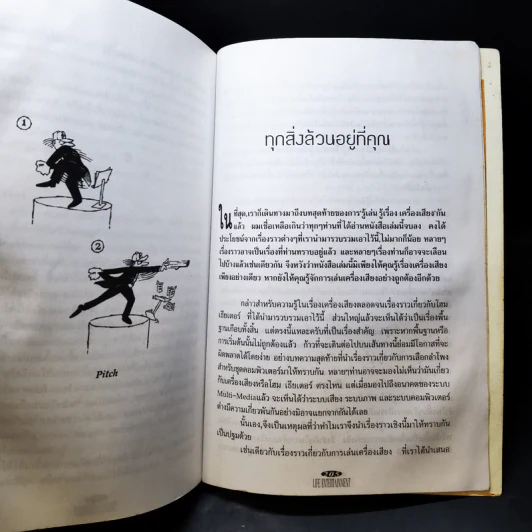 1
2
Pitch
ทุกสิ่งล้วนอยู่ที่คุณ
ในที่สุด,เราก็เดินทางมาถึงบทสุดท้ายของการ'รู้เล่น รู้เรื่อง เครื่องเสียง'กัน
แล้ว ผมเชื่อเหลือเกินว่าทุกๆท่านที่ได้อ่านหนังสือเล่มนี้จบลง คงได้
ประโยชน์จากเรื่องราวต่างๆที่เรานำมารวบรวมเอาไว้นี้,ไม่มากก็น้อย หลายๆ
เรื่องราวอาจเป็นเรื่องที่ท่านทราบอยู่แล้ว และหลายๆเรื่องท่านก็อาจจะเลือน
ไปบ้างแล้วเช่นเดียวกัน จึงหวังว่าหนังสือเล่มนี้มิเพียงให้คุณรู้เรื่องเครื่องเสียง
เพียงอย่างเดียว หากยังให้คุณรู้จักการเล่นเครื่องเสียง อย่างถูกต้องอีกด้วย
กล่าวสำหรับความรู้ในเรื่องเครื่องเสียงตลอดจนเรื่องราวเกี่ยวกับโฮม
เธียเตอร์ ที่ได้นำมารวบรวมเอาไว้นี้ ส่วนใหญ่แล้วจะเห็นได้ว่าเป็นเรื่องพื้น
ฐานเกือบทั้งสิ้น แต่ตรงนี้แหละครับที่เป็นเรื่องสำคัญ เพราะหากพื้นฐานหรือ
การเริ่มต้นนั้นไม่ถูกต้องแล้ว ก้าวที่จะเดินต่อไปบนเส้นทางนี้ย่อมมีโอกาสที่จะ
ผิดพลาดได้โดยง่าย อย่างบทความสุดท้ายที่นำเรื่องราวเกี่ยวกับการเลือกลำโพง
สำหรับชุดคอมพิวเตอร์มาให้ทราบกัน หลายๆท่านอาจจะมองไม่เห็นว่ามันเกี่ยว
กับเครื่องเสียงหรือโฮม เธียเตอร์ ตรงไหน แต่เมื่อมองไปถึงอนาคตของระบบ
Multi-Mediaแล้ว จะเห็นได้ว่าระบบเสียง ระบบภาพ และระบบคอมพิวเตอร์
ต่างมีความเกี่ยวพันกันอย่างมิอาจแยกจากกันได้เลย
นั้นเอง,จึงเป็นเหตุผลที่ว่าทำไมเราจึงนำเรื่องราวเชิงนี้มาให้ทราบกัน
เป็นปฐมด้วย
เช่นเดียวกับเรื่องราวเกี่ยวกับการเล่นเครื่องเสียง ที่เราได้นำเสนอ
LIFE ENTERTAINMENT